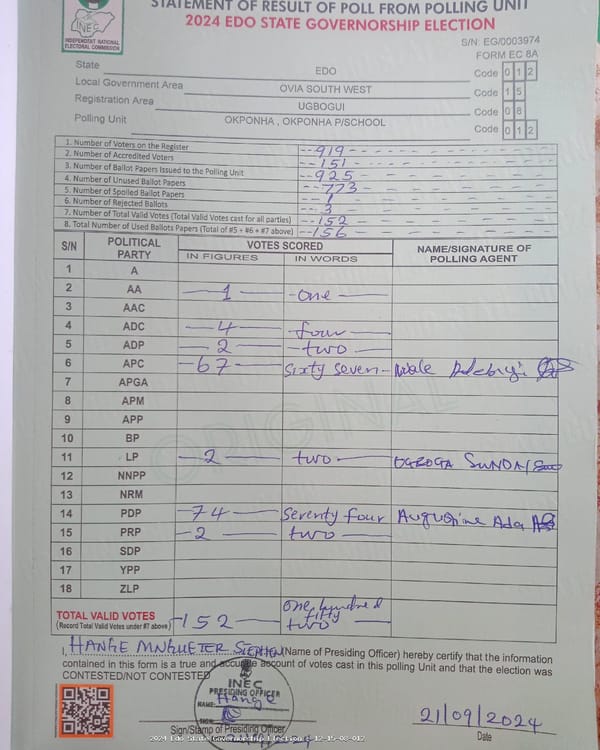 STATEMENT OF RESULT OF POLL FROM POLLING UNIT
2024 EDO STATE GOVERNORSHIP ELECTION
INEC
INDEPENDENT NATIONAL
ELECTORAL COMMISSION
S/N: EG/0003974
FORM EC 8A
State EDO Code 0 1 2
Local Government Area OVIA SOUTH WEST Code 1 5
Registration Area UGBOGUI Code 0 8
Polling Unit OKPONHA , OKPONHA P/SCHOOL Code 0 1 2
1. Number of Voters on the Register 919
2. Number of Accredited Voters 151
3. Number of Ballot Papers Issued to the Polling Unit 925
4. Number of Unused Ballot Papers 773
5. Number of Spoiled Ballot Papers 1
6. Number of Rejected Ballots 3
7. Number of Total Valid Votes (Total Valid Votes cast for all parties) 152
8. Total Number of Used Ballots Papers (Total of #5 + #6 + #7 above) 156
S/N POLITICAL PARTY VOTES SCORED NAME/SIGNATURE OF POLLING AGENT
IN FIGURES IN WORDS
1 A
2 AA 1 one
3 AAC
4 ADC 4 four
5 ADP 2 two
6 APC 67 sixty seven Wale
7 APGA
8 APM
9 APP
10 BP
11 LP 2 two SUNDAY
12 NNPP
13 NRM
14 PDP 74 seventy four Augustine
15 PRP 2 two
16 SDP
17 YPP
18 ZLP
ORIGINAL
TOTAL VALID VOTES 152 one hundred fifty two
(Record Total Valid Votes under #7 above)
I, HANGE STEPHEN (Name of Presiding Officer) hereby certify that the information
contained in this form is a true and accurate account of votes cast in this polling Unit and that the election was
CONTESTED/NOT CONTESTED
INEC
PRESIDING OFFICER
Hange
SIGN
21/09/2024
Sign/Stamp of Presiding Officer Date
2024 Edo State Governorship Election - 12-15-08-012